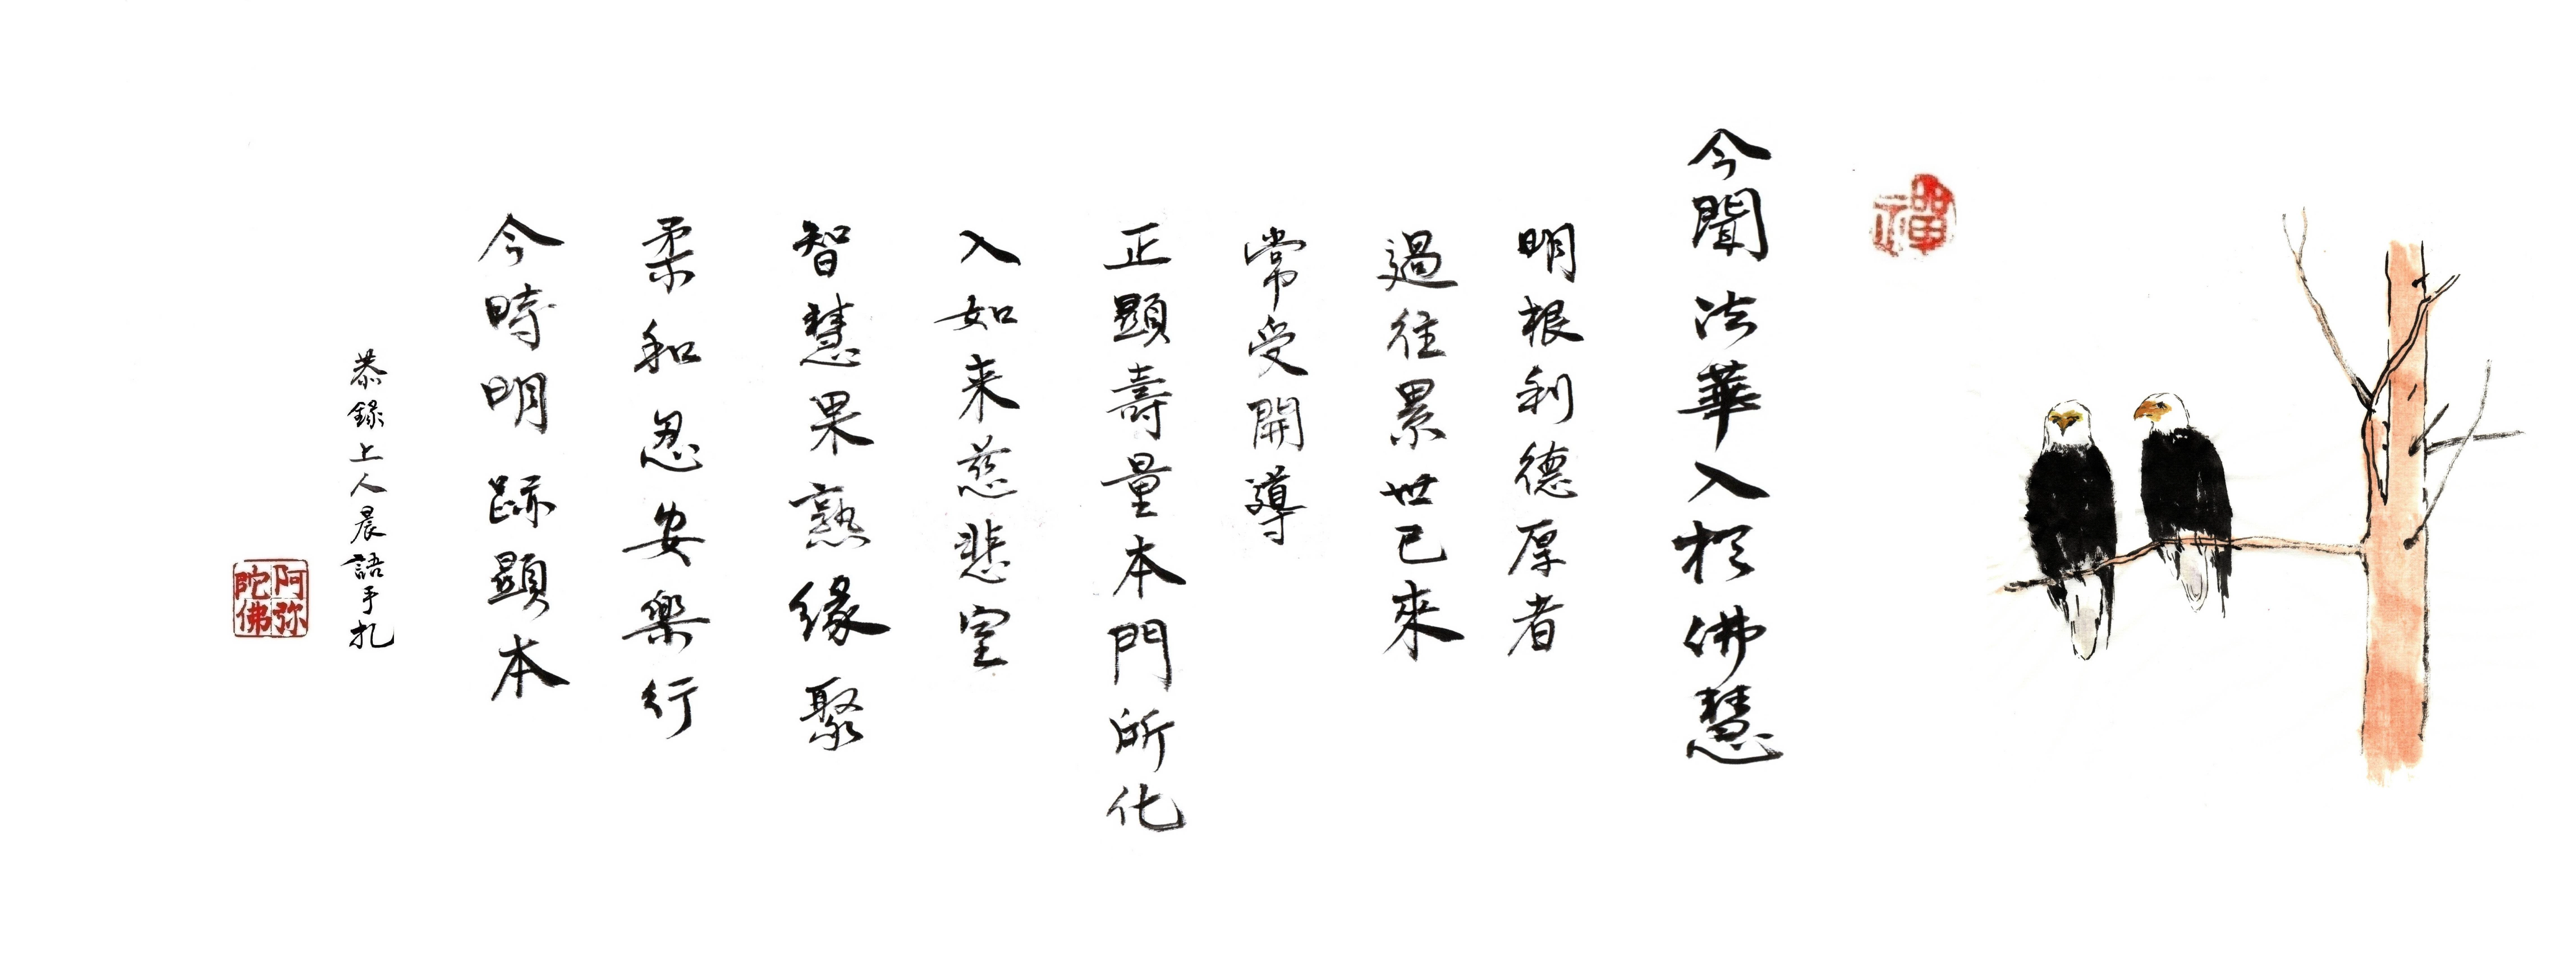 禪
今聞法華入於佛慧
明根利德厚者
過往累世已來
常受開導
正顯壽量本門所化
入如来慈悲室
智慧果熟緣聚
柔和忍安樂行
今時明跡顯本
恭錄上人晨語手扎
阿弥陀佛